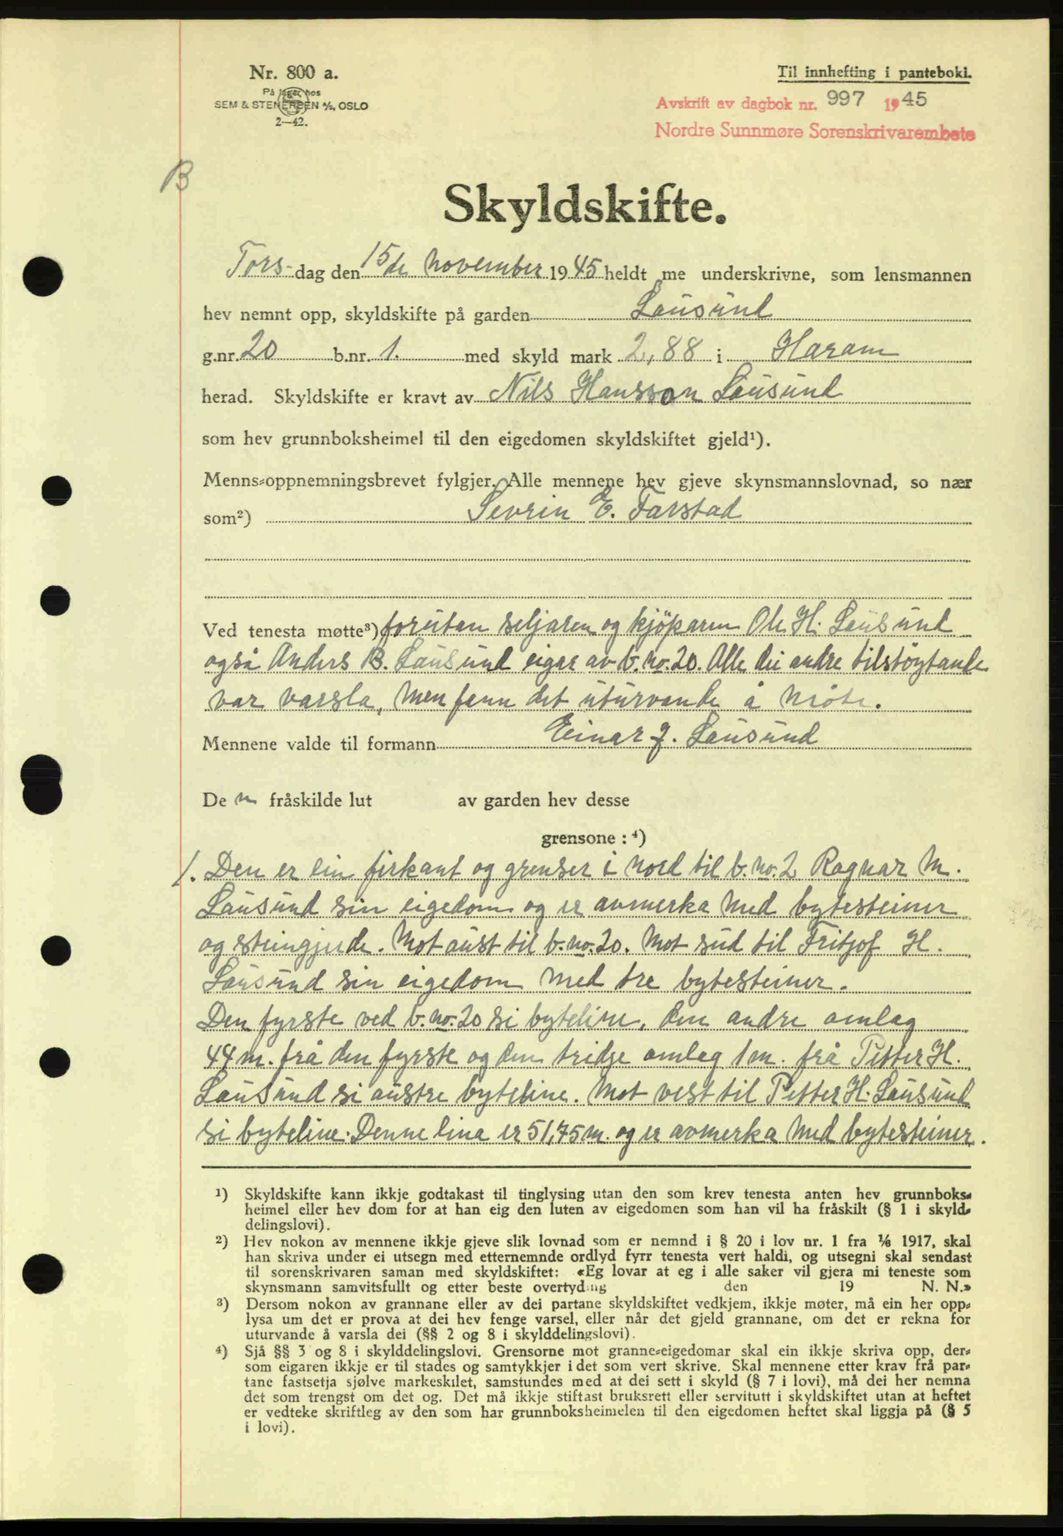 Nr. 800 a.
På lager hos
SEM & STENERSEN A/S, OSLO
2—42.
Til innhefting i panteboki.
Avskrift av dagbok nr. 997 1945
Nordre Sunnmøre Sorenskrivarembete
B
Skyldskifte.
Tors-dag den 15de november 1945 heldt me underskrivne, som lensmannen
hev nemnt opp, skyldskifte på garden Lausund
g.nr. 20 b.nr. 1. med skyld mark 2,88 i Haram
herad. Skyldskifte er kravt av Nils Hansson Lausund
som hev grunnboksheimel til den eigedomen skyldskiftet gjeld¹).
Menns-oppnemningsbrevet fylgjer. Alle mennene hev gjeve skynsmannslovnad, so nær
som²) Sevrin E. Farstad
Ved tenesta møtte³) foruten seljaren og kjöparen Ole H. Lausund
også Anders B. Lausund eigar av b.no. 20. Alle dei andre tilstøytande
var varsla, men fann det uturvande å möte.
Mennene valde til formann Einar J. Lausund
De n fråskilde lut av garden hev desse
grensone : ⁴)
1. Den er ein firkant og grenser i nord til b.no. 2 Ragnar M.
Lausund sin eigedom og er avmerka med bytesteiner
og steingjerde. Mot aust til b.no. 20. Mot sud til Fritjof H.
Lausund sin eigedom med tre bytesteiner.
Den fyrste ved b.no. 20 si byteline, den andre omlag
44 m. frå den fyrste og den tridje omlag 1 m. frå Petter H.
Lausund si austre byteline. Mot vest til Petter H. Lausund
si byteline. Denne lina er 51,75 m. og er avmerka med bytesteiner.
¹) Skyldskifte kann ikkje godtakast til tinglysing utan den som krev tenesta anten hev grunnboks-
heimel eller hev dom for at han eig den luten av eigedomen som han vil ha fråskilt (§ 1 i skyld-
delingslovi).
²) Hev nokon av mennene ikkje gjeve slik lovnad som er nemnd i § 20 i lov nr. 1 fra 1/6 1917, skal
han skriva under ei utsegn med etternemnde ordlyd fyrr tenesta vert haldi, og utsegni skal sendast
til sorenskrivaren saman med skyldskiftet: «Eg lovar at eg i alle saker vil gjera mi teneste som
skynsmann samvitsfullt og etter beste overtyding den 19 N. N.»
³) Dersom nokon av grannane eller av dei partane skyldskiftet vedkjem, ikkje møter, må ein her opp-
lysa um det er prova at dei hev fenge varsel, eller når det gjeld grannane, om det er rekna for
uturvande å varsla dei (§§ 2 og 8 i skylddelingslovi).
⁴) Sjå §§ 3 og 8 i skylddelingslovi. Grensorne mot granne-eigedomar skal ein ikkje skriva opp, der-
som eigaren ikkje er til stades og samtykkjer i det som vert skrive. Skal mennene etter krav frå par-
tane fastsetja sjølve markeskilet, samstundes med at dei sett i skyld (§ 7 i lovi), må dei her nemna
det som trengst om det og. Det må ikkje stiftast bruksrett eller servitutt i skyldskiftet utan at heftet
er vedteke skriftleg av den som har grunnboksheimelen til den eigedomen heftet skal liggja på (§ 5
i lovi).